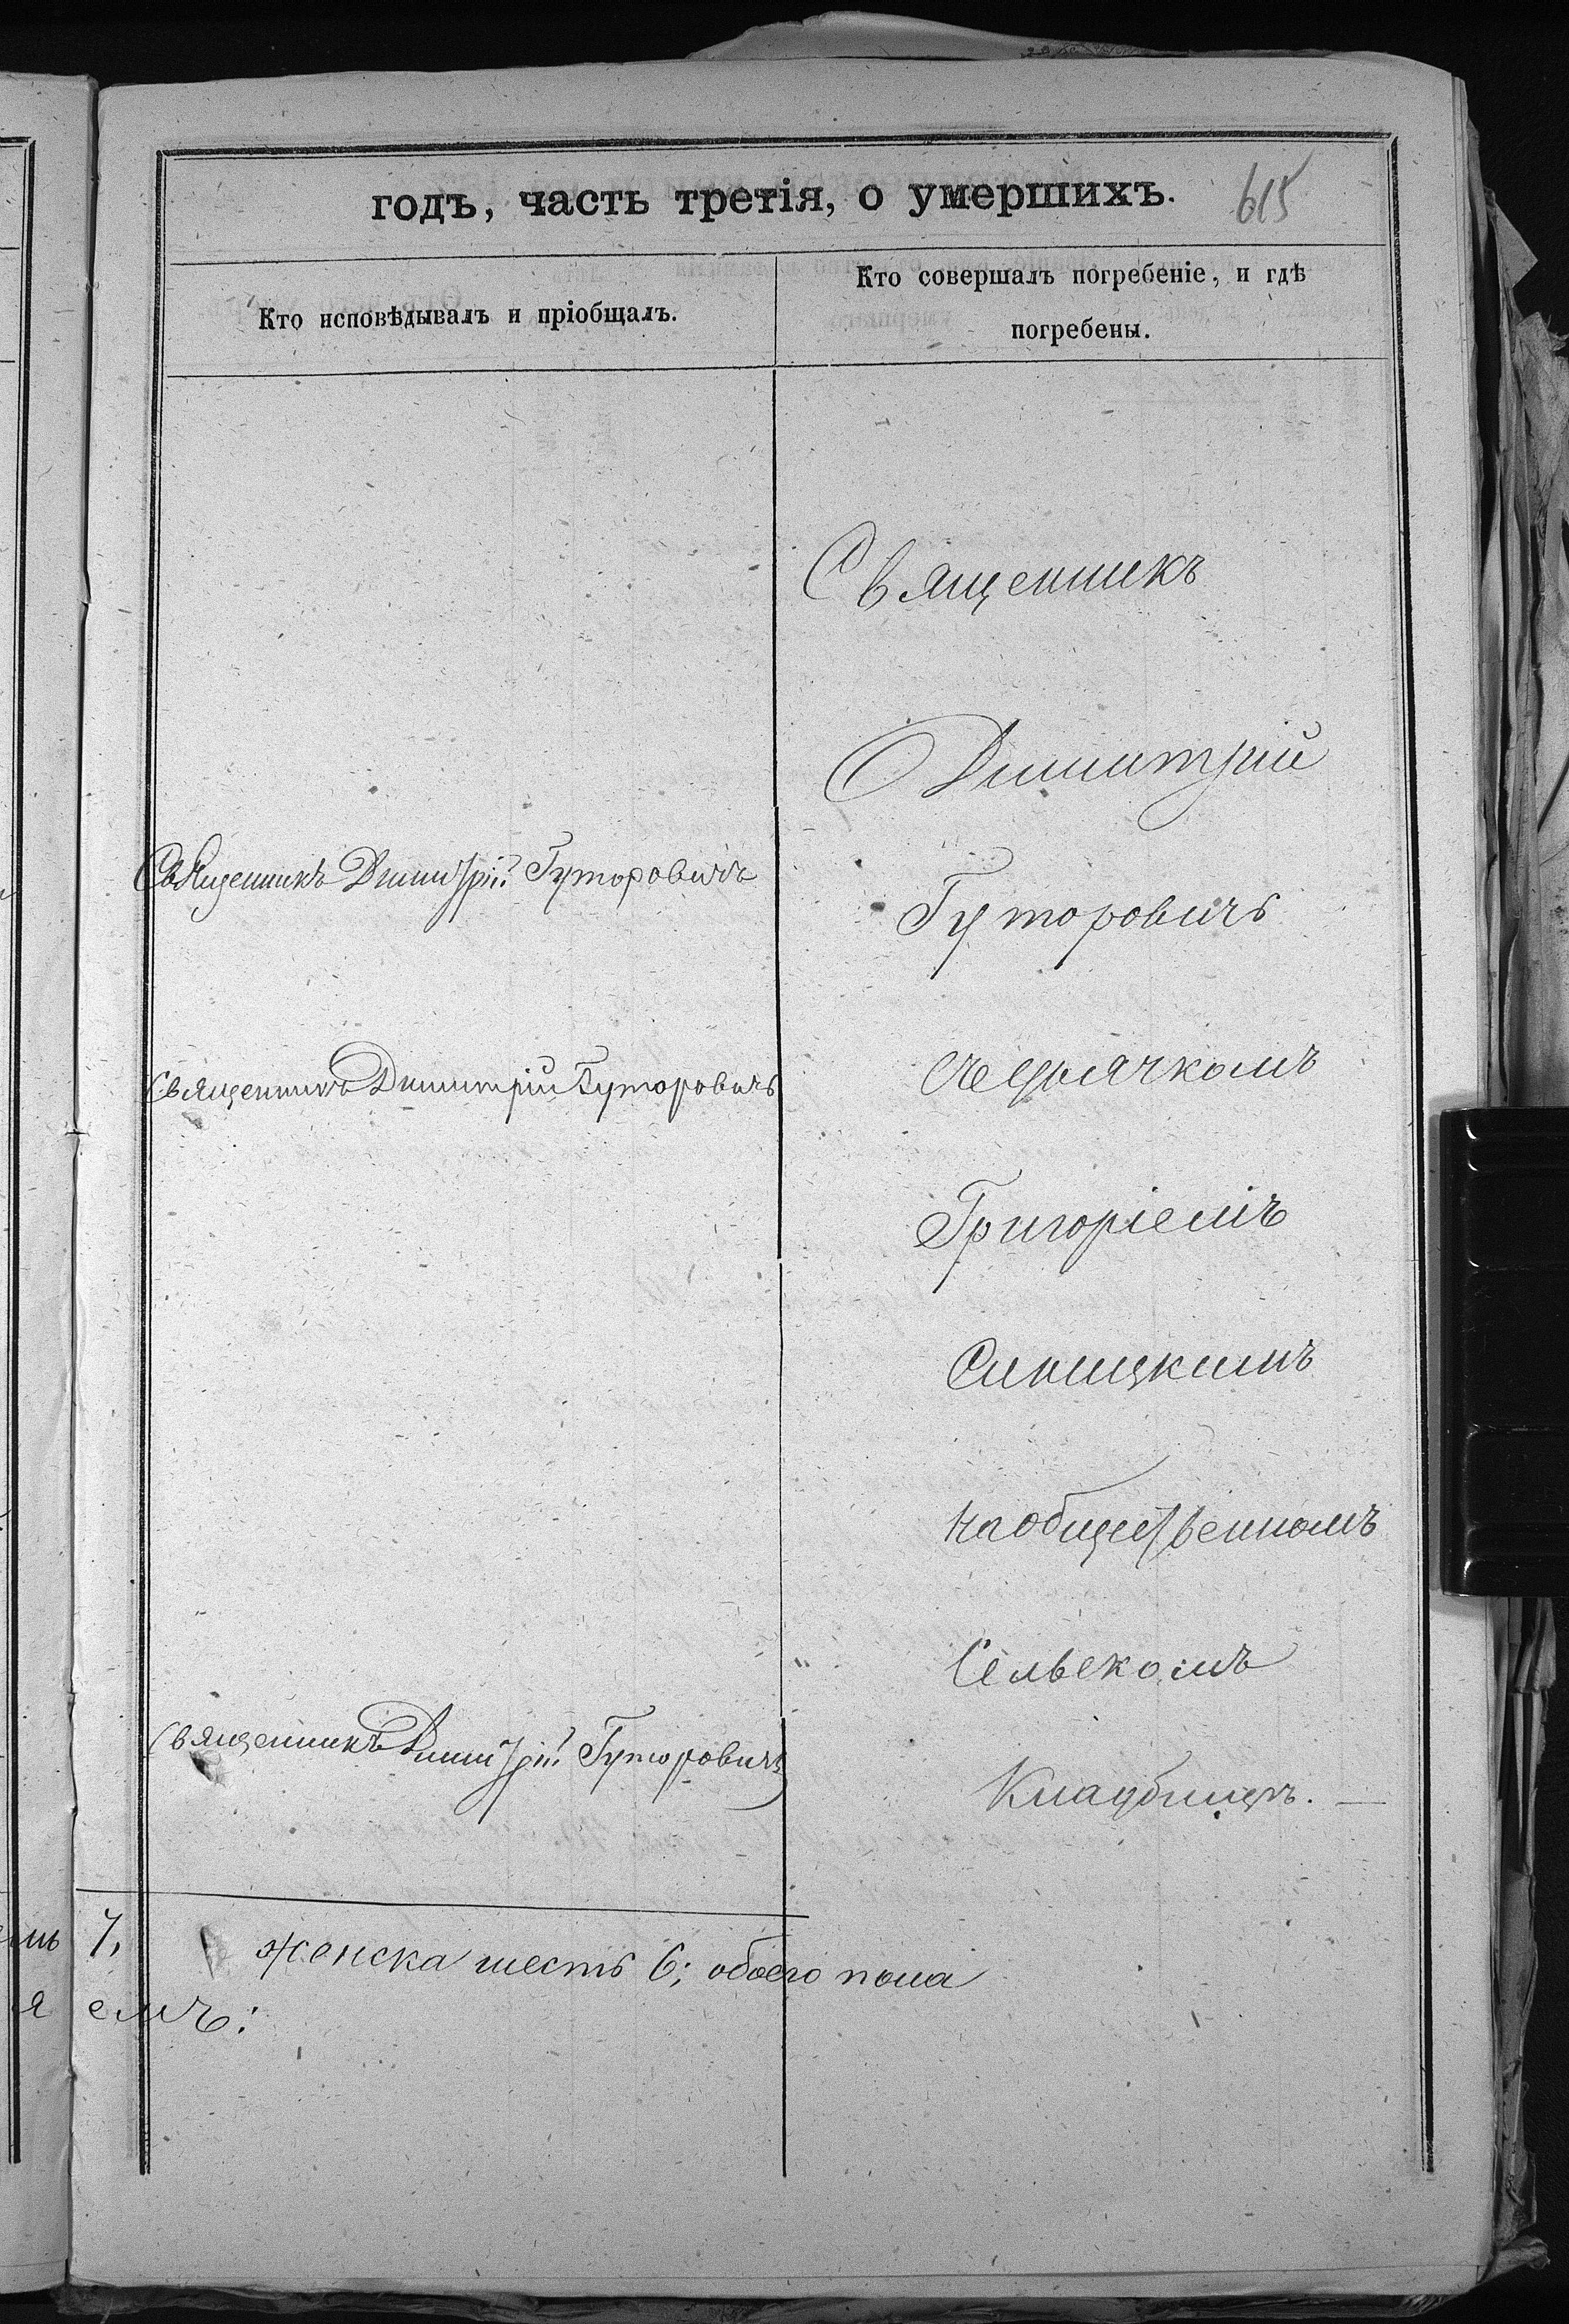 годъ, часть третія, о умершихъ.
615
Кто исповѣдывалъ и пріобщалъ.
Кто совершалъ погребеніе, и гдѣ
погребены.
Священникъ
Димитрій
Священникъ Димитрій Гуторовичъ
Гуторовичъ
съ дьячкомъ
Священникъ Димитрій Гуторовичъ
Григоріемъ
Синицкимъ
на общественномъ
Сельскомъ
Священникъ Димитрій Гуторовичъ
Кладбищѣ. —
7, женска шесть 6; обоего пола